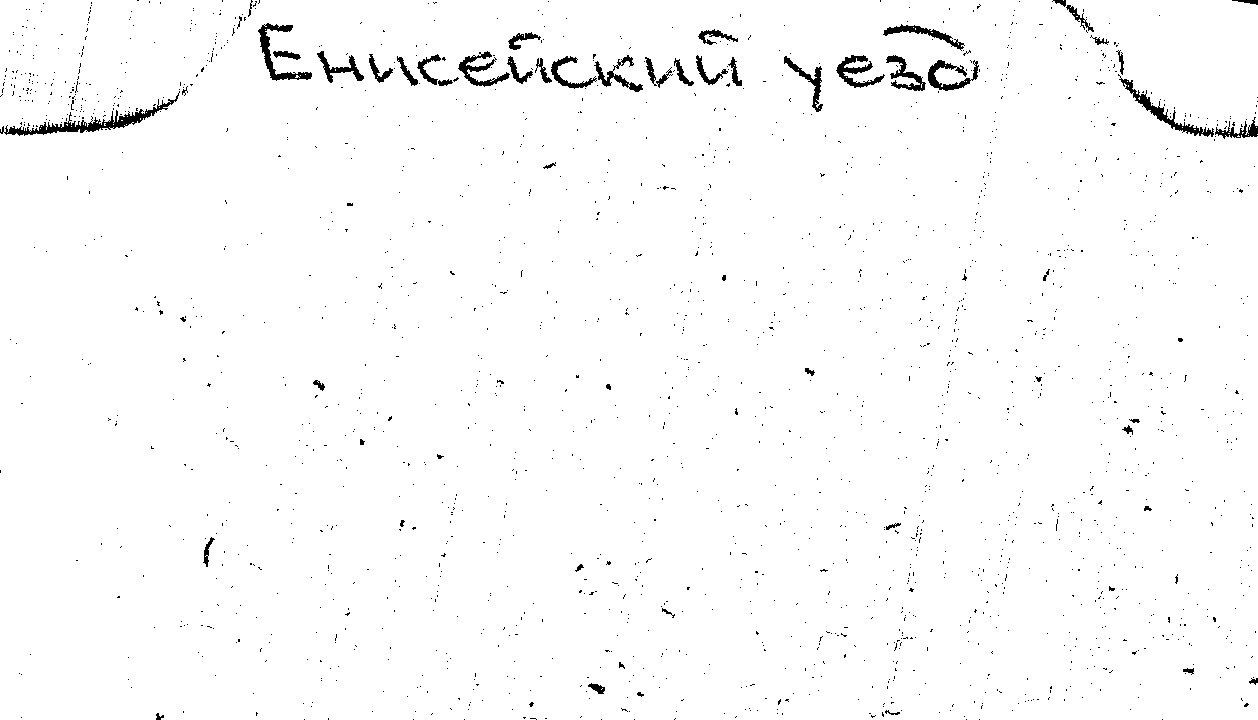 Енисейский уезд